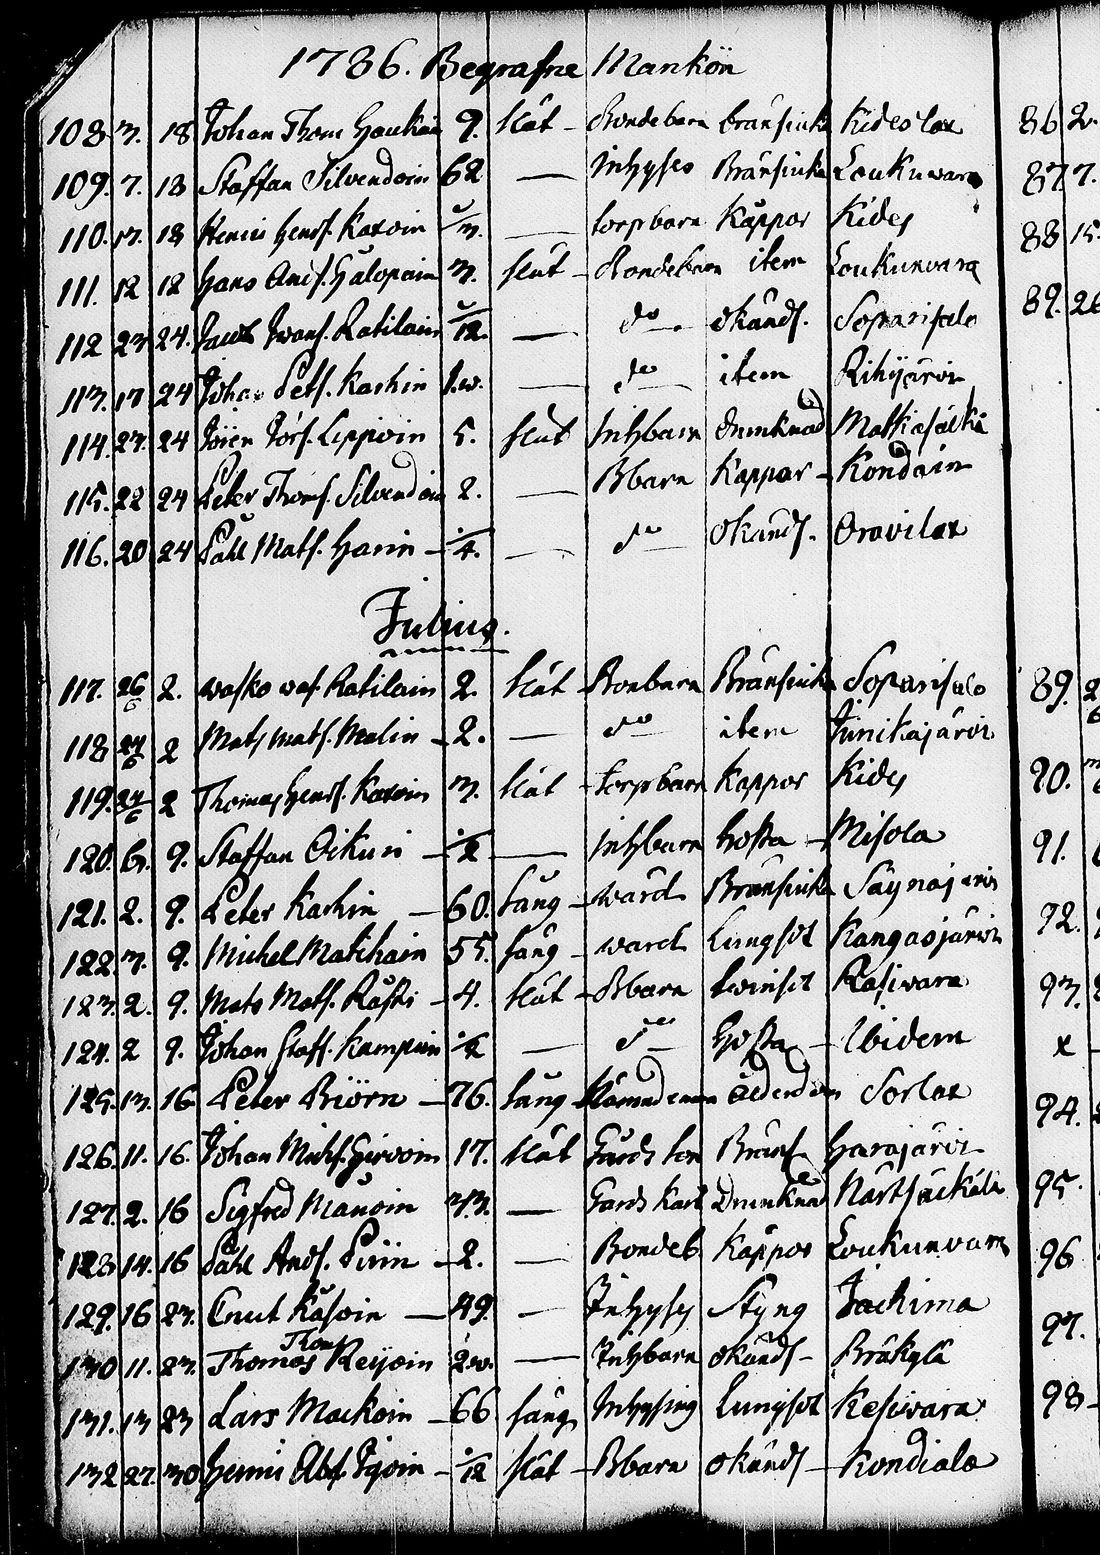 1786. Begrafne Mankön
108 7. 18 Johan Thom Haukain 9. slät - Bondebarn bränsiuka Kideslax 86 2.
109. 7. 18 Staffan Silvendoin 62 — Inhyses Bränsiuka Loukunvara 87 7.
110. 17. 18 Henric Henrs. Karvin — torpbarn Kappor Kides 88 15.
111. 12 18 Hans And s. Halopain 7. slät - Bondebarn item Loukunvara
112 23 24. Jacob Iwans. Ratilain 12. — do okänds. Soparisalo 89. 26
113. 17 24 Johan Pets. Karhin 1.w. — do item Rihijärvi
114. 23. 24 Jöran Jörs. Leppoin 5. slät Inhbarn Drunknad Matkaselkä
115. 22 24 Peter Thoms. Silvendoin 2. — Bbarn Kappor - Kondain
116. 20 24 Påhl Mats. Harin - 4. — do okänds. Oravilax
Julius.
117. 26/6 2. Wasko Was. Ratilain 2. slät - Bonbarn Bränsiuka Soparisalo 89. 2
118 27/6 2 Mats Mats. Malin - 2. — do item Junikajärvi
119. 27/6 2 Thomas Henrs. Karvin 7. slät - torpbarn Kappor Kides 90.
120. 6. 9. Staffan Oikuri — 2 — Inhbarn hosta - Misola 91. 6
121. 2. 9. Peter Karhin — 60. Lång - wärd Bränsiuka Säynäjärvi
122. 7. 9. Michel Matihain 55. lång - ward Lungsot Kangasjärvi 92.
123. 2. 9. Mats Mats. Räski - 4. slät - Bbarn twinsot Rasivara 93. 2
124. 2 9. Johan Staff. Kumpuin 2 — do Hosta - Ibidem x
125. 13. 16 Peter Biörn — 76. lång Nämndeman ålderdom Sorlax 94.
126. 11. 16. Johan Michs. Hirvoin 17. slät Gårds son Bräns. Harajärvi
127. 2. 16 Sigfred Manoin 77. — Gårds karl Drunknad Närtsäckälä 95.
128 14. 16 Påhl Ands. Pirin - 2. — Bondeb. Kappor Loukunvara 96
129. 16 23. Cnut Käsoin — 49. — Inhyses Styng Jackima
130 11. 23. Thomas Thom Reijoin 2w. — Inhbarn okänds - Bräkylä 97.
131. 13 23 Lars Mackoin - 66 lång Inhysing Lungsot Kesivara 98 -
132 27. 30 Henric Abr. Ijoin - 12 slät - Bbarn okänds - Kondiala